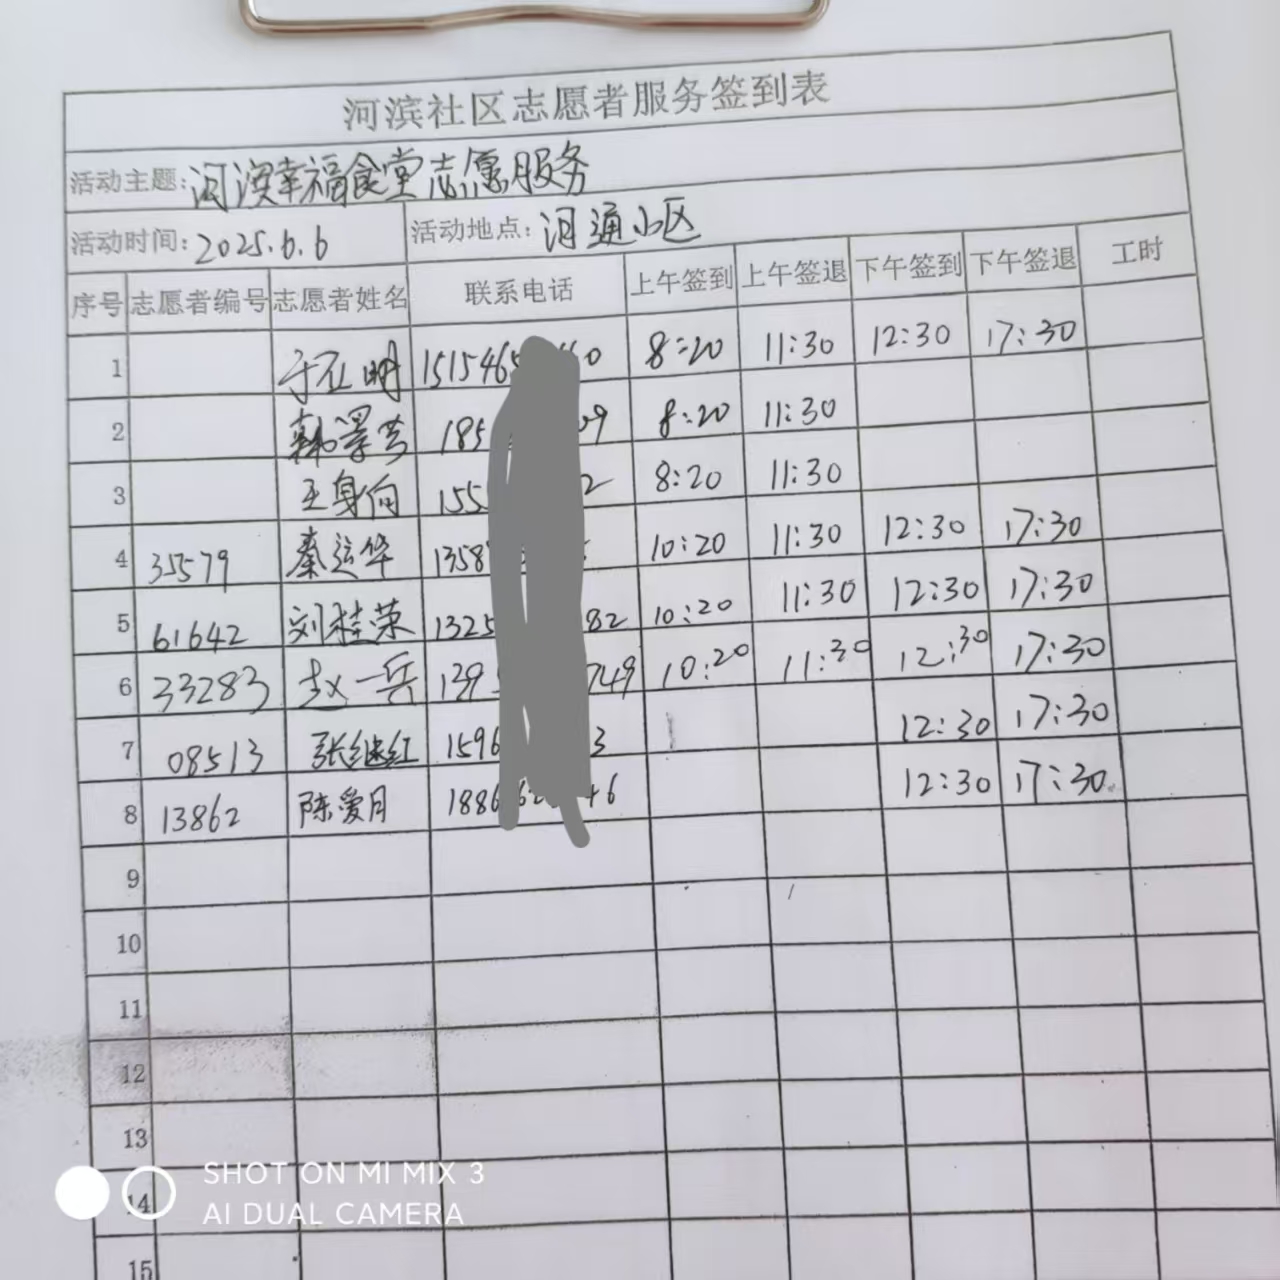 河滨社区志愿者服务签到表
活动主题: 河滨幸福食堂志愿服务
活动时间: 2025.6.6 活动地点: 河通小区
序号 志愿者编号 志愿者姓名 联系电话 上午签到 上午签退 下午签到 下午签退 工时
1 于 明 151546 0 8:20 11:30 12:30 17:30
2 韩泽芳 185 09 8:20 11:30
3 王身向 155 2 8:20 11:30
4 35579 秦运华 1358 10:20 11:30 12:30 17:30
5 61642 刘桂荣 1325 82 10:20 11:30 12:30 17:30
6 33283 赵一兵 139 749 10:20 11:30 12:30 17:30
7 08513 张继红 1596 3 12:30 17:30
8 13862 陈爱月 1886 46 12:30 17:30
9
10
11
12
13
14
15
SHOT ON MI MIX 3
AI DUAL CAMERA